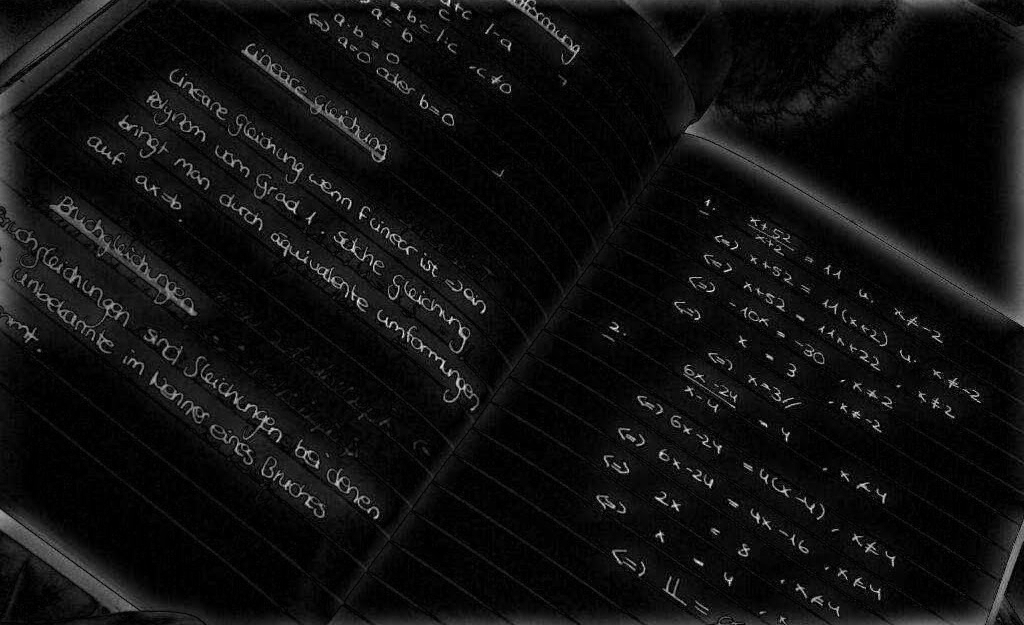 = bc | ·c
· c ≠ 0
a · b = 0
<=> a=0 oder b=0
Lineare gleichung
Lineare gleichung wenn f linear ist → an
Polynom vom Grad 1. Solche gleichung
bringt man durch äquivalente umformungen
auf ax=b.
Bruchgleichungen
Bruchgleichungen sind gleichungen bei denen
unbekannte im Nenner eines Bruches
1. x+52 / x+2 = 11 u. x≠-2
<=> x+52 = 11(x+2) u. x≠-2
<=> x+52 = 11x+22 · x≠2
<=> -10x = -30 · x≠2
<=> x = 3 · x≠-2
<=> x=3//
2. 6x-24 / x-4 = 4 · x≠4
<=> 6x-24 = 4(x-4) · x≠4
<=> 6x-24 = 4x-16 · x≠4
<=> 2x = 8 · x≠4
<=> x = 4 · x
<=> 𝕃 =